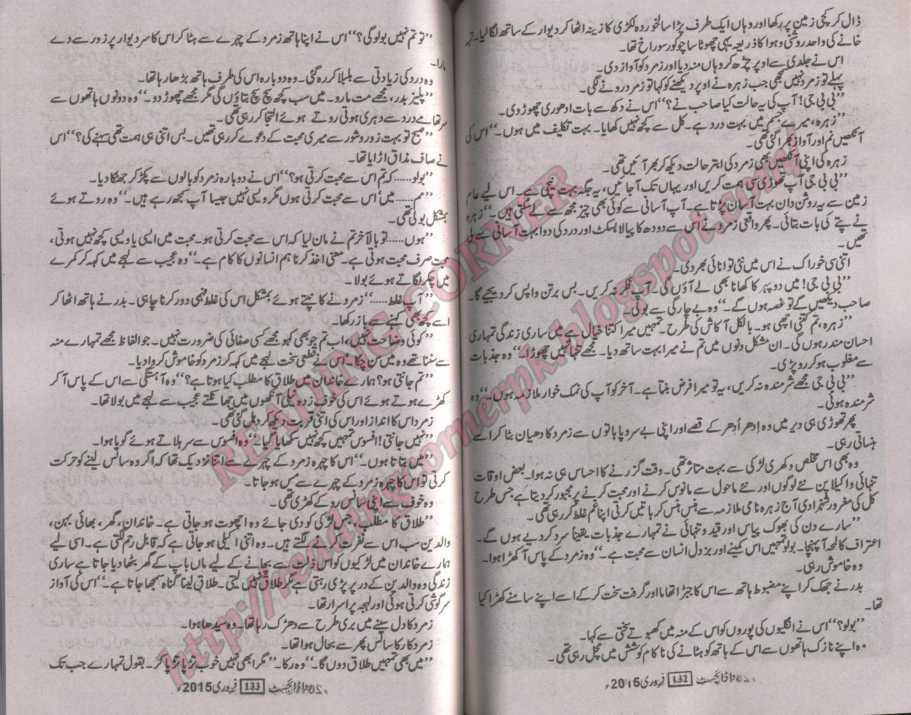 ڈال کر کچی زمین پر رکھا اور وہاں ایک طرف پڑا سالخوردہ لکڑی کا زینہ اٹھا کر دیوار کے ساتھ لگا لیا۔ تہہ
خانے کی واحد روشنی و ہوا کا ذریعہ یہی چھوٹا سا چوکور سوراخ تھا۔
اس نے جلدی سے اوپر چڑھ کر وہاں منہ دیا اور زمرد کو آواز دی۔
پہلے تو زمرد نہیں سمجھی جب زہرہ نے اوپر دیکھنے کو کہا تو زمرد رونے لگی۔
”بی بی جی! آپ کی یہ حالت کیا صاحب نے؟“ اس نے دکھ سے بات ادھوری چھوڑ دی۔
”زہرہ، میرے جسم میں بہت درد ہے۔ کل سے کچھ نہیں کھایا۔ بہت تکلیف میں ہوں۔“ اس کی
آنکھیں نم اور آواز بھرا گئی تھی۔
زہرہ کی اپنی آنکھیں بھی زمرد کی ابتر حالت دیکھ کر بھر آئیں تھی۔
”بی بی جی آپ تھوڑی سی ہمت کریں اور یہاں تک آ جائیں، یہ جگہ بہت نیچی ہے۔ اس لیے عام
زمین سے یہ روشن دان بہت آسان پڑتا ہے۔ آپ آسانی سے کوئی بھی چیز مجھ سے لے سکتی ہیں۔“ زہرہ
نے پتے کی بات بتائی۔ پھر واقعی زمرد نے اس سے دودھ کا پیالا بسکٹ اور درد کی دوا بہت آسانی سے لی
تھیں۔
اتنی سی خوراک نے اس میں نئی توانائی بھر دی۔
”بی بی جی! میں دوپہر کا کھانا بھی لے آؤں گی۔ آپ فکر نہ کریں۔ بس برتن واپس کر دیجیے گا۔
صاحب دیکھیں گے تو غصہ ہوں گے۔“ وہ بے چارگی سے بولی۔
”زہرہ، تم کتنی اچھی ہو۔ بالکل آکاش کی طرح۔ تمہیں میرا کتنا خیال ہے میں ساری زندگی تمہاری
احسان مند رہوں گی۔ ان مشکل دنوں میں تم نے میرا بہت ساتھ دیا۔ مجھے تنہا نہیں چھوڑا۔“ وہ جذبات
سے مغلوب ہو کر رو پڑی۔
”بی بی جی مجھے شرمندہ نہ کریں، یہ تو میرا فرض بنتا ہے۔ آخر کو آپ کی نمک خوار ملازمہ ہوں۔“ وہ
شرمندہ ہوئی۔
پھر تھوڑی ہی دیر میں وہ اِدھر اُدھر کے قصے اور اپنی بے سروپا باتوں سے زمرد کا دھیان بٹا کر اسے
ہنساتی رہی۔
وہ بھی اس مخلص دکھری لڑکی سے بہت متاثر تھی۔ وقت گزرنے کا احساس ہی نہ ہوا۔ بعض اوقات
تنہائی و اکیلا پن نئے لوگوں اور نئے ماحول سے مانوس کرنے اور محبت کرنے پر مجبور کر دیتا ہے جس طرح
کل کی مغرور شہزادی آج زہرہ نامی ملازمہ سے ہنس ہنس کر باتیں کرتی اپنا غم غلط کر رہی تھی۔
”سارے دن کی بھوک پیاس اور قید و تنہائی نے تمہارے جذبات یقیناً سرد کر دیے ہوں گے۔
اعتراف کا لمحہ آ پہنچا۔ بولو تمہیں اس کمینے اور بزدل انسان سے محبت ہے۔“ وہ زمرد کے پاس آ کھڑا ہوا۔
وہ خاموش رہی۔
بدر نے جھک کر اپنے مضبوط ہاتھ سے اس کا جبڑا تھاما اور گرفت سخت کر کے اسے اپنے سامنے کھڑا کیا
تھا۔
”بولو؟“ اس نے انگلیوں کی پوروں کو اس کے منہ میں کھبوتے سختی سے کہا۔
وہ اپنے نازک ہاتھوں سے اس کے ہاتھ کو ہٹانے کی ناکام کوشش میں مچل رہی تھی۔
ردا ڈائجسٹ 132 فروری 2015ء
”تو تم نہیں بولو گی؟“ اس نے اپنا ہاتھ زمرد کے چہرے سے ہٹا کر اس کا سر دیوار پر زور سے دے
مارا۔
وہ درد کی زیادتی سے بلبلا کر رہ گئی۔ وہ دوبارہ اس کی طرف ہاتھ بڑھا رہا تھا۔
”پلیز بدر، مجھے مت مارو۔ میں سب کچھ سچ سچ بتاؤں گی مگر مجھے چھوڑ دو۔“ وہ دونوں ہاتھوں سے
سر تھامے درد سے دہری ہوتی روتے ہوئے التجا کر رہی تھی۔
”صبح تو بہت زور و شور سے میری محبت کے دعوے کر رہی تھیں۔ بس اتنی ہی ہمت تھی سہنے کی؟“ اس
نے صاف مذاق اڑایا تھا۔
”بولو...... کہ تم اس سے محبت کرتی ہو؟“ اس نے دوبارہ زمرد کو بالوں سے پکڑ کر جھٹکا دیا۔
”مم...... میں اس سے محبت کرتی ہوں مگر ویسی نہیں جیسا آپ سمجھ رہے ہیں۔“ وہ روتے ہوئے
بمشکل بولی تھی۔
”ہوں...... تو بالآخر تم نے مان لیا کہ اس سے محبت کرتی ہو۔ محبت میں ایسی یا ویسی کچھ نہیں ہوتی،
محبت صرف محبت ہوتی ہے۔ معنی اخذ کرنا ہم انسانوں کا کام ہے۔“ وہ عجیب سے لہجے میں کہہ کر کمرے
میں چکر لگاتے ہوئے بولا۔
”آپ غلط......“ زمرد نے کانپتے ہوئے بمشکل اس کی غلط فہمی دور کرنا چاہی۔ بدر نے ہاتھ اٹھا کر
اسے کچھ بھی کہنے سے باز رکھا۔
”کوئی وضاحت نہیں، اب تم جو بھی کہو مجھے کسی صفائی کی ضرورت نہیں۔ جو الفاظ مجھے تمہارے منہ
سے سننا تھے وہ میں سن چکا۔“ اس نے قطعی سخت لہجے میں کہہ کر زمرد کو خاموش کروا دیا۔
”تم جانتی ہو؟ ہمارے خاندان میں طلاق کا مطلب کیا ہوتا ہے؟“ وہ آہستگی سے اس کے پاس آ کر
کھڑے ہوتے ہوئے اس کی خوف زدہ نیلی آنکھوں میں جھانکتے عجیب سے لہجے میں بولا تھا۔
زمرد اس کا انداز اور اس کی اتنی قربت دیکھ کر دہل گئی تھی۔
”نہیں جانتی!! افسوس تمہیں کچھ نہیں سکھایا گیا۔“ وہ افسوس سے سر ہلاتے ہوئے گویا ہوا۔
”میں بتاتا ہوں۔“ اس کا چہرہ زمرد کے چہرے سے اتنا نزدیک تھا کہ اگر وہ سانس لینے کو حرکت
کرتی تو اس کا چہرہ زمرد کے چہرے سے مس ہو جاتا۔
وہ خوف سے اپنی سانس روکے کھڑی تھی۔
”طلاق کا مطلب ہے جس لڑکی کو دی جائے وہ اچھوت ہو جاتی ہے۔ خاندان، گھر، بھائی بہن،
والدین سب اس سے نفرت کرنے لگتے ہیں۔ وہ اتنی اکیلی ہو جاتی ہے کہ قابل رحم لگتی ہے۔ اسی لیے
ہمارے خاندان میں لڑکیوں کو اس ذلت سے بچانے کے لیے ماں باپ کے گھر بٹھا دیا جاتا ہے ساری
زندگی وہ والدین کے در پر پڑی رہتی ہے مگر طلاق نہیں لیتی۔ طلاق لینا گناہ سمجھا جاتا ہے۔“ اس کی آواز
سرگوشی کرتی ہوئی اور لہجہ پراسرار تھا۔
زمرد کا دل سینے میں بری طرح سے دھڑک رہا تھا۔ وہ سیدھا ہوا۔
زمرد کا رکا سانس پھر سے بحال ہوا تھا۔
”میں بھی تمہیں طلاق دوں گا۔“ وہ رکا۔ ”مگر ابھی نہیں خوب تڑپا تڑپا کر۔ بقول تمہارے جب تک
ردا ڈائجسٹ 133 فروری 2015ء
READING CORNER
http://readingcornerpk.blogspot.com/